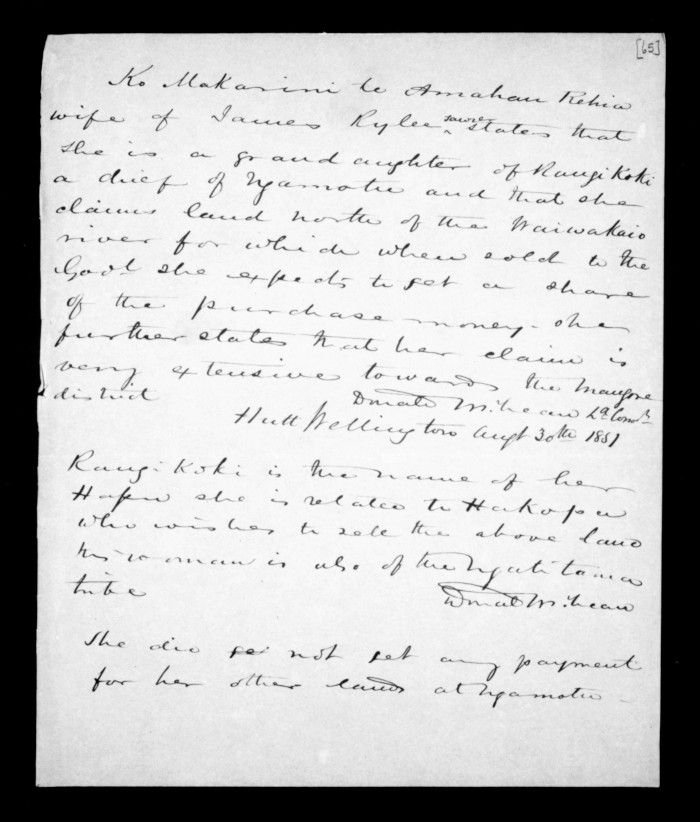 [65]
Ko Makarini te Amahau Rehia
wife of James Rylee sawyer states that
she is a grandaughter of Rangi Koki
a chief of Ngamotu and that she
claims land north of the Waiwakaio
river for which when sold to the
Govt she expects to get a share
of the purchase money. She
further states that her claim is
very extensive towards the
district
Donald McLean Ld Commr
Hutt Wellington Augt 30th 1851
Rangi Koki is the name of her
Hapu she is related to Hakopa
who wishes to sell the above land
this woman is also of the Ngatitama
tribe
Donald McLean
She did not get any payment
for her other lands at Ngamotu